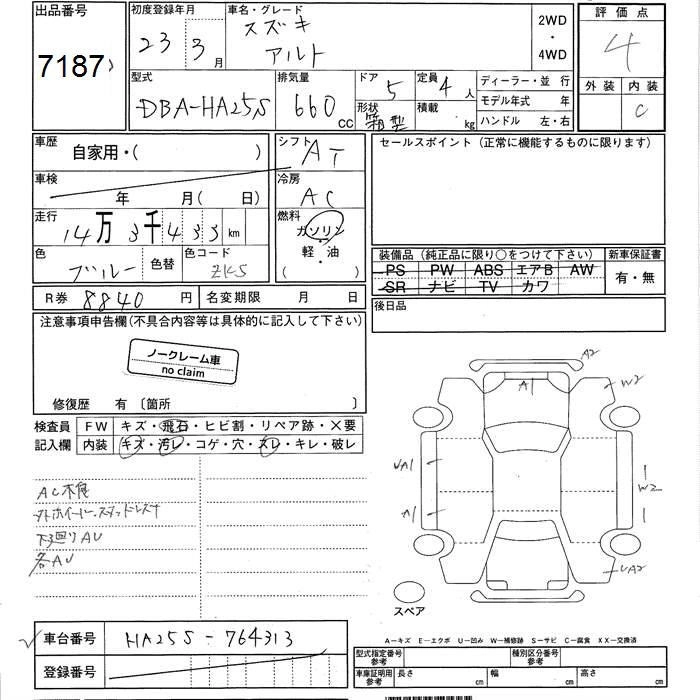 出品番号
7187
初度登録年月
23 3 月
車名・グレード
スズキ
アルト
2WD
・
4WD
評価点
4
外装 内装
C
型式
DBA-HA25S
排気量
660 CC
ドア
5
形状
箱型
定員
4 人
積載
kg
ディーラー・並行
モデル年式 年
ハンドル 左・右
車歴
自家用・( )
シフト
AT
セールスポイント (正常に機能するものに限ります)
車検
年 月( 日)
冷房
AC
走行
14万3千433km
燃料
ガソリン
・
軽・油
( )
色
ブルー
色替
色コード
ZK5
装備品 (純正品に限り○をつけて下さい)
PS PW ABS エアB AW
SR ナビ TV カワ
新車保証書
有・無
R券 8840 円
名変期限 月 日
後日品
注意事項申告欄(不具合内容等は具体的に記入して下さい)
ノークレーム車
no claim
修復歴 有 〔箇所 〕
検査員
記入欄
FW キズ・飛石・ヒビ割・リペア跡・X要
内装 キズ・汚レ・コゲ・穴・スレ・キレ・破レ
AC不良
外ホイール・スタッドレス
下廻りAU
各AU
A2
A1
W2
UA1
A1
W2
UA2
スペア
A－キズ E－エクボ U－凹み W－補修跡 S－サビ C－腐食 XX－交換済
車台番号 HA25S-764313
登録番号
型式指定番号
参考
種別区分番号
参考
車庫証明用
参考
長さ cm
幅 cm
高さ cm